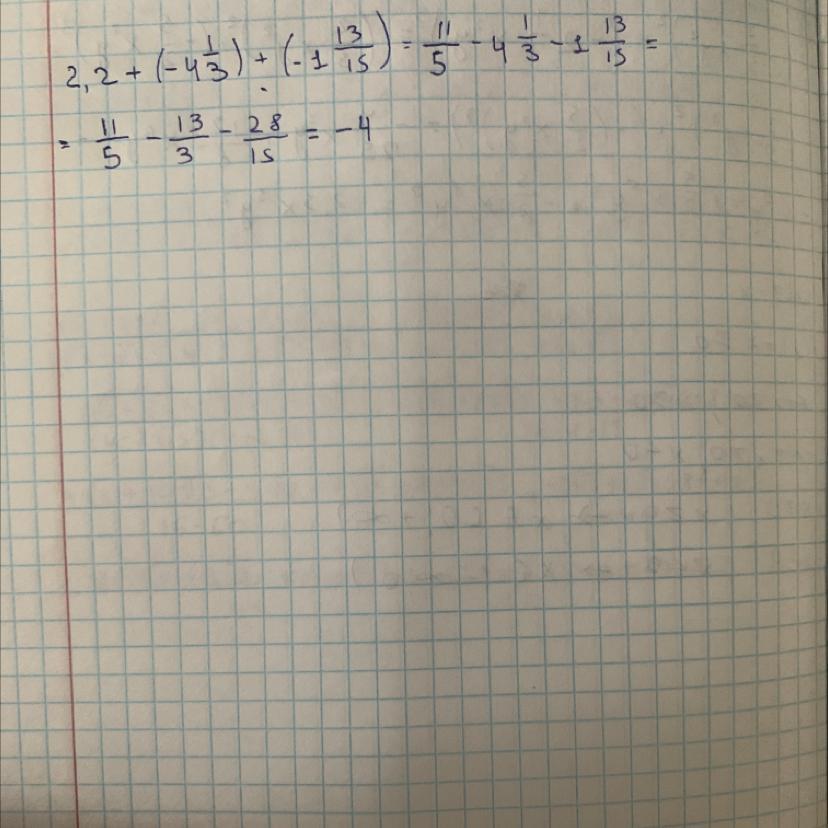 2,2 + (-4 1/3) + (-1 13/15) = 11/5 - 4 1/3 - 1 13/15 =
= 11/5 - 13/3 - 28/15 = -4